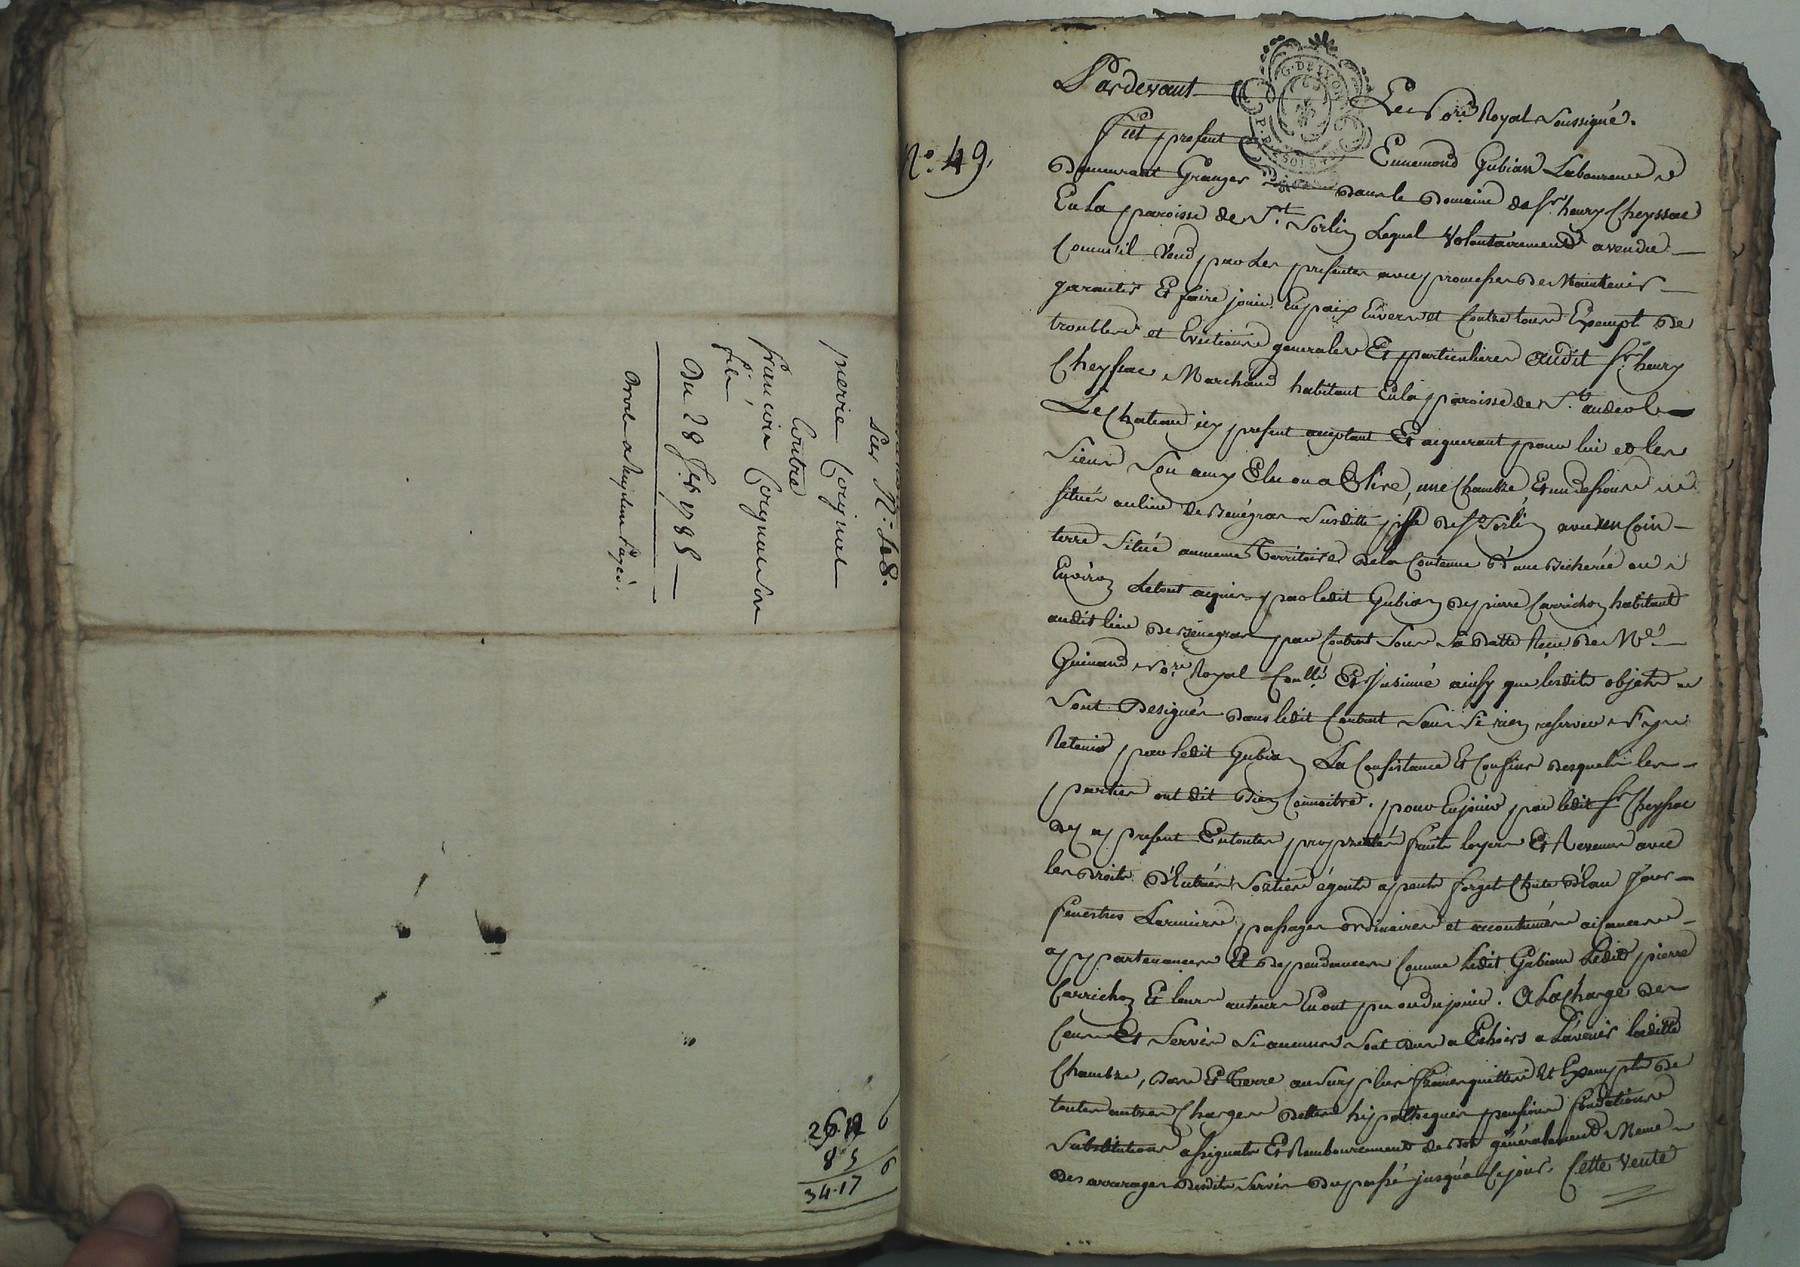 Sur N.° 48.
pierre Coignet
Contre
francois Coignet son
fils
Du 28 1785
26 12 6
8 5
34.17 6
N.° 49.
G. DE LYON
Pardevant Le No.re Royal soussigné.
fut present Ennemond Gubian Laboureur
demeurant Granger dans le domaine de Sr. henry Cheyssac
En la paroisse de St. Sorlin Lequel volontairement a vendu
Comme il vend par Les presentes avec promesse de Maintenir
garantir Et faire jouir En paix Envers et Contre tous Exempt de
troubles et Evictions generales Et particulieres audit Sr. henry
Cheyssac Marchand habitant En la paroisse de St. andeol
Le Chateau icy present acceptant Et aquerant pour lui et les
siens Son amy Elu ou a Elire, une Chambre, Et un dessous
situés au lieu de susditte psse de St. Sorlin avec un Coin
terre Situé au meme Territoire de la Contenue d'une bicherée ou
Environ Le tout aquis par ledit Gubian de pierre Carrichon habitant
audit lieu de par Contrat sous Sa datte Reçu de Me.
Guinand No.re Royal Conllé. Et Insinué ainsy que lesdits objets
sont Designés dans ledit Contrat Sans Se rien reserver Ny
Retenir par ledit Gubian La Consistance Et Confins desquels les
parties ont dit bien Connoitre. pour En jouir par ledit Sr. Cheyssac
des a present En toutes proprietés fruits loyers Et Revenus avec
les droits D'Entrées Sorties égouts Chute D'Eau Jour
fenestres Larmiers, passages ordinaires et accoutumés aisances
appartenances Et dependances Comme Ledit Gubian Ledit pierre
Carrichon Et leurs auteurs En ont pu ou du jouir. A La Charge des
Cens Et Servis Si aucuns sont dus a Echoirs a L'avenir laditte
Chambre, bas Et Terre au Surplus franc quitte Et Exempte de
toutes autres Charges dettes hipotheques pensions fondations
Substitutions assignats Et Remboursements de dot généralement Meme
des arrerages desdits Servis du passé jusqu'a Ce jour. Cette Vente